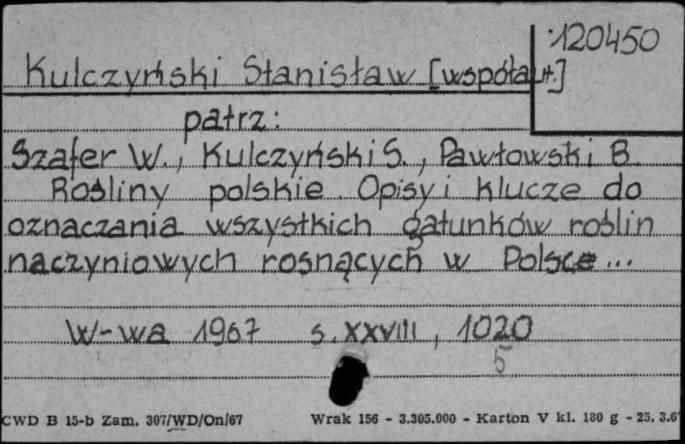 120450
Kulczyński Stanisław [współaut.]
patrz:
Szafer W., Kulczyński S., Pawłowski B.
Rośliny polskie. Opisy i klucze do
oznaczania wszystkich gatunków roślin
naczyniowych rosnących w Polsce...
W-wa 1967 s. XXVIII, 1020
5
CWD B 15-b Zam. 307/WD/On/67 Wrak 156 - 3.305.000 - Karton V kl. 180 g - 25. 3.67